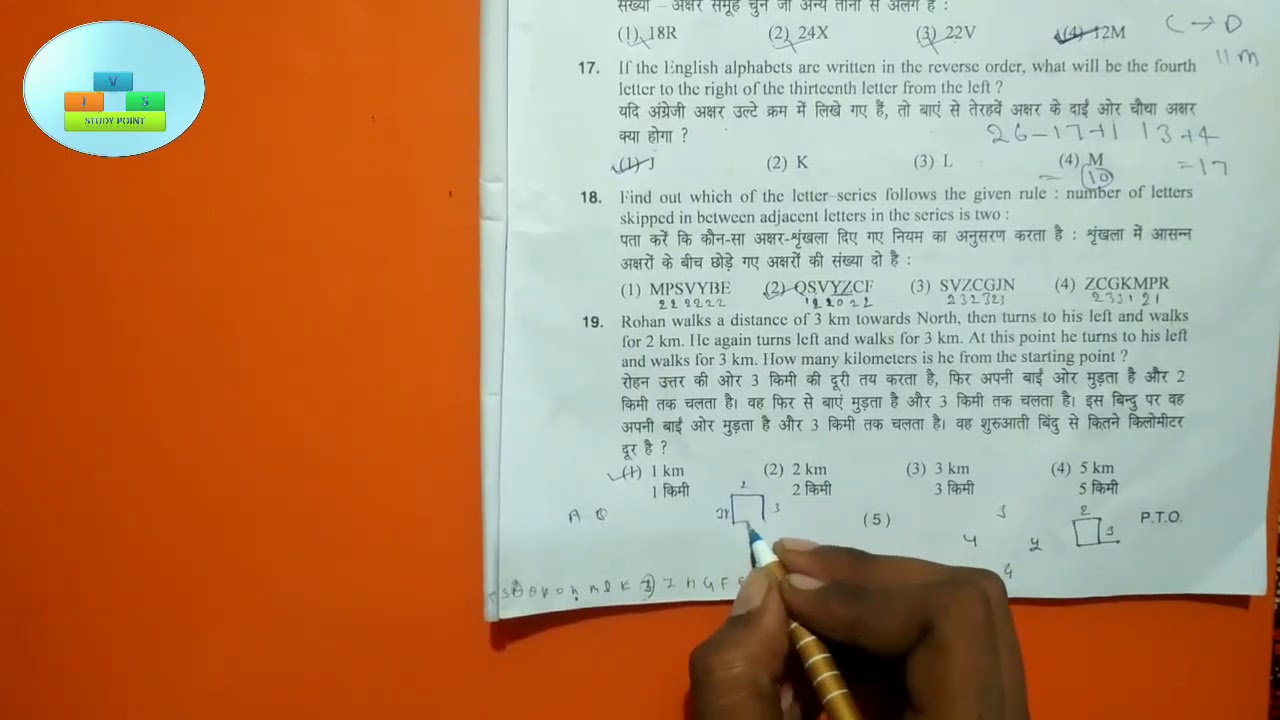 V
I S
STUDY POINT
संख्या – अक्षर समूह चुनें जो अन्य तीनों से अलग है :
(1) 18R (2) 24X (3) 22V (4) 12M
C → D
11 m
17. If the English alphabets are written in the reverse order, what will be the fourth
letter to the right of the thirteenth letter from the left ?
यदि अंग्रेजी अक्षर उल्टे क्रम में लिखे गए हैं, तो बाएं से तेरहवें अक्षर के दाईं ओर चौथा अक्षर
क्या होगा ?
26-17+1 13+4
(1) J (2) K (3) L (4) M
= 10 =17
18. Find out which of the letter–series follows the given rule : number of letters
skipped in between adjacent letters in the series is two :
पता करें कि कौन-सा अक्षर-शृंखला दिए गए नियम का अनुसरण करता है : शृंखला में आसन्न
अक्षरों के बीच छोड़े गए अक्षरों की संख्या दो है :
(1) MPSVYBE (2) QSVYZCF (3) SVZCGJN (4) ZCGKMPR
222222 122022 232323 233121
19. Rohan walks a distance of 3 km towards North, then turns to his left and walks
for 2 km. He again turns left and walks for 3 km. At this point he turns to his left
and walks for 3 km. How many kilometers is he from the starting point ?
रोहन उत्तर की ओर 3 किमी की दूरी तय करता है, फिर अपनी बाईं ओर मुड़ता है और 2
किमी तक चलता है। वह फिर से बाएं मुड़ता है और 3 किमी तक चलता है। इस बिन्दु पर वह
अपनी बाईं ओर मुड़ता है और 3 किमी तक चलता है। वह शुरुआती बिंदु से कितने किलोमीटर
दूर है ?
(1) 1 km (2) 2 km (3) 3 km (4) 5 km
1 किमी 2 किमी 3 किमी 5 किमी
2 3
3 2 3
(5) P.T.O.